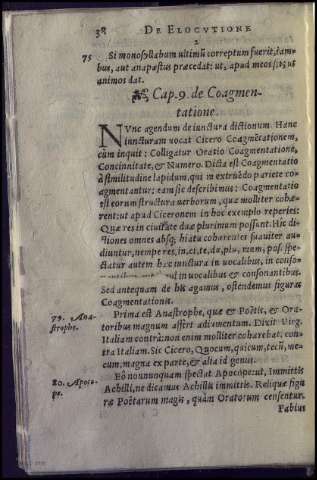 38 DE ELOCVTIONE
75 Si monosyllabum ultimũ correptum fuerit, iam-
bus, aut anapæstus præcedat: ut, apud meos sit: ut
animos dat.
Cap. 9. de Coagmen-
tatione.
NVnc agendum de iunctura dictionum. Hanc
iuncturam vocat Cicero Coagmẽtationem,
cùm inquit: Colligatur Oratio Coagmentatione,
Concinnitate, & Numero. Dicta est Coagmentatio
à similitudine lapidum, qui in extruẽdo pariete co-
agmentantur; eam sic describimus: Coagmentatio
est eorum structura verborum, quæ molliter cohæ-
rent: ut apud Ciceronem in hoc exemplo reperies:
Quæ res in ciuitate duæ plurimùm possunt. Hic di-
ctiones omnes absq; hiatu cohærentes suauiter au-
diuntur, nempe res, in, ci, te, du, plu, mùm, pos, spe-
ctatur autem hæc iunctura in vocalibus, in conso-
in vocalibus & consonantibus.
Sed antequam de his agamus, ostendemus figuras
Coagmentationis.
79. Ana-
strophe.
Prima est Anastrophe, quæ Poëtis, & Ora-
toribus magnum affert adiumentum. Dixit Virg.
Italiam contrà: non enim molliter cohærebat, con-
tra Italiam. Sic Cicero, Quocum, quicum, tecũ, me-
cum, magna ex parte, & alia id genus.
80. Apoco-
pe.
Eò nonnunquam spectat Apocope: ut, Immittis
Achilli, ne dicamus Achillis immittis. Reliquæ figu
ræ Poëtarum magis, quàm Oratorum censentur.
Fabius